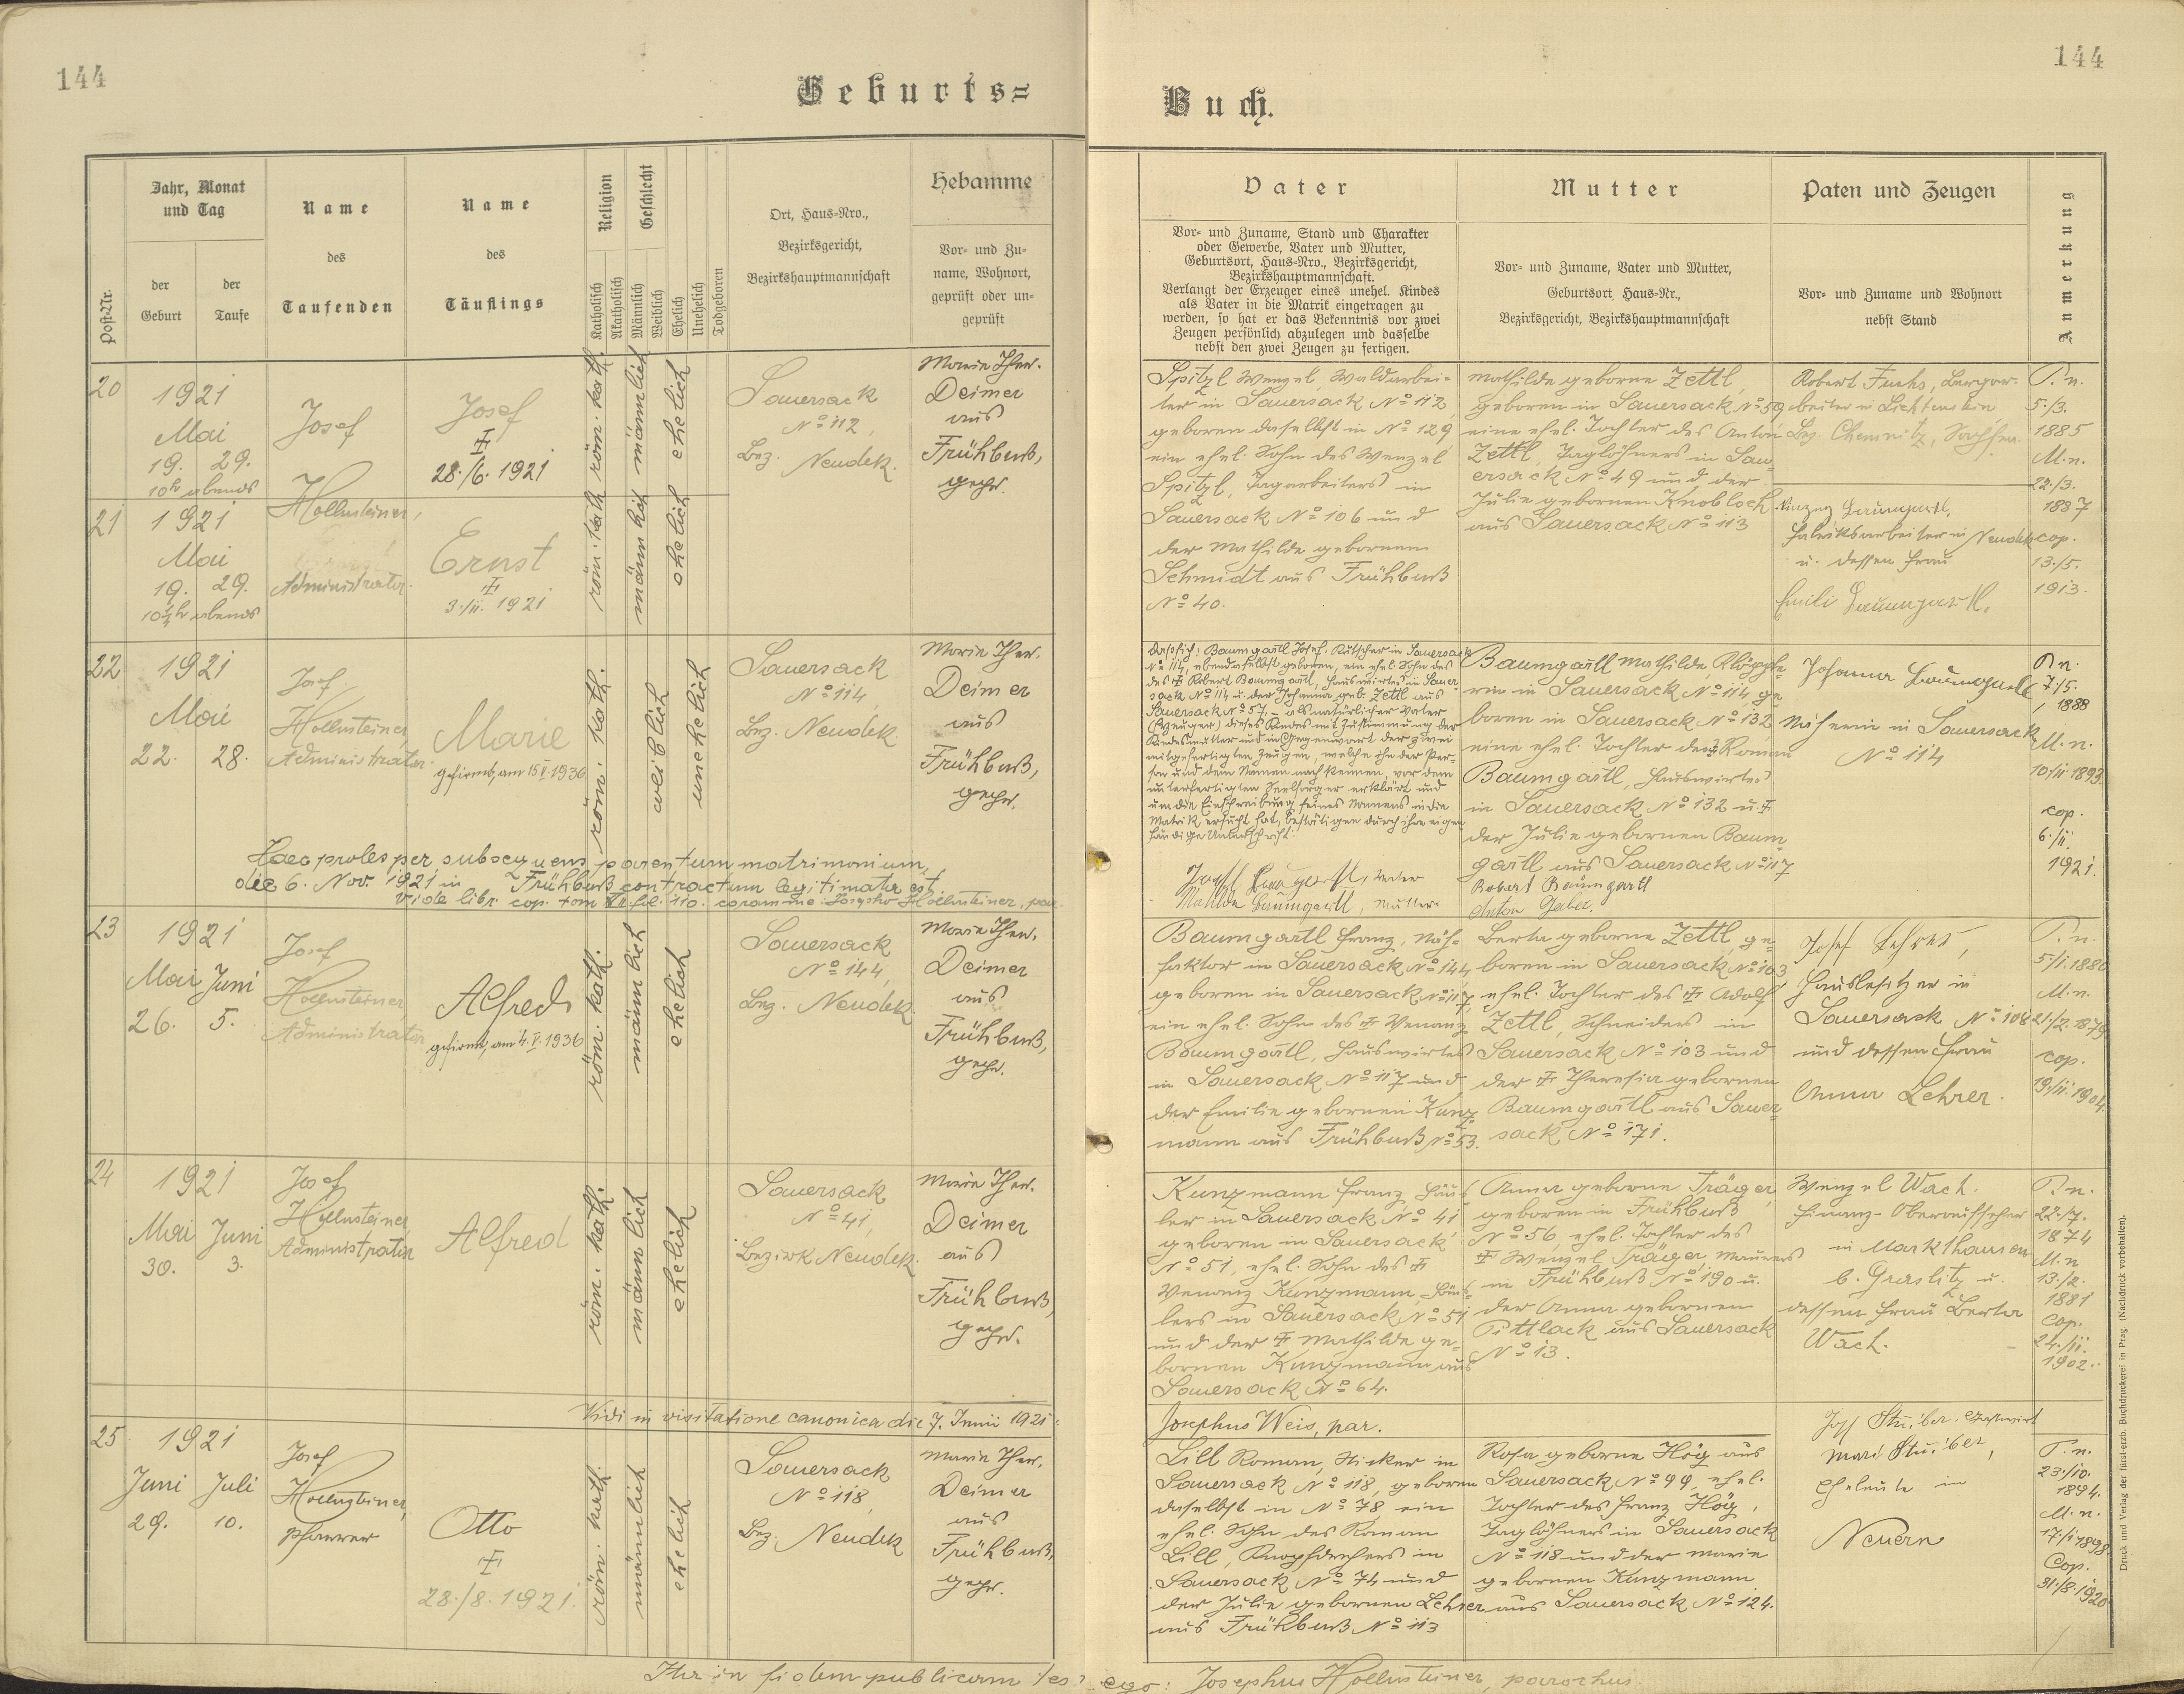 144
Geburts=
Jahr, Monat
und Tag
der
Geburt
der
Taufe
Post-Nr.
Name
des
Taufenden
Name
des
Täuflings
Religion
Katholisch
Akatholisch
Geschlecht
Männlich
Weiblich
Ehelich
Unehelich
Todgeboren
Ort, Haus-Nro.,
Bezirksgericht,
Bezirkshauptmannschaft
Hebamme
Vor- und Zu-
name, Wohnort,
geprüft oder un-
geprüft
20
1921
Mai
19. 29.
10h abends
Josef
Hollnsteiner,
Administrator
Josef
28./6. 1921
röm. kath.
männlich
ehelich
Sauersack
No 112,
Bez. Neudek.
Marie Ther.
Deimer
aus
Frühbuß,
gepr.
21
1921
Mai
19. 29.
abends
Ernst
3./11. 1921
röm. kath
männlich
ehelich
22
1921
Mai
22. 28.
Josef
Hollnsteiner,
Administrator
Marie
gefirmt, am 15.V.1936
röm. kath.
weiblich
unehelich
Sauersack
No 114,
Bez. Neudek.
Marie Ther.
Deimer
aus
Frühbuß,
gepr.
Haec proles per subsequens parentum matrimonium,
die 6. Nov. 1921 in Frühbuß contractum legitimata est
Vide libr. cop. tom
23
1921
Mai Juni
26. 5.
Josef
Hollnsteiner,
Administrator
Alfred
gefirmt, am 4.V.1936
röm. kath.
männlich
ehelich
Sauersack
No 144,
Bez. Neudek.
Marie Ther.
Deimer
aus
Frühbuß,
gepr.
24
1921
Mai Juni
30. 3.
Josef
Hollnsteiner,
Administrator
Alfred
röm. kath.
männlich
ehelich
Sauersack
No 41,
Bezirk Neudek.
Marie Ther.
Deimer
aus
Frühbuß,
gepr.
Vidi in visitatione canonica die 7. Junii 1921.
25
1921
Juni Juli
29. 10.
Josef
Hollnsteiner,
Pfarrer
Otto
28./8. 1921.
röm. kath.
männlich
ehelich
Sauersack
No 118,
Bez. Neudek
Marie Ther.
Deimer
aus
Frühbuß,
gepr.
144
Buch.
Vater
Vor- und Zuname, Stand und Charakter
oder Gewerbe, Vater und Mutter,
Geburtsort, Haus-Nro., Bezirksgericht,
Bezirkshauptmannschaft.
Verlangt der Erzeuger eines unehel. Kindes
als Vater in die Matrik eingetragen zu
werden, so hat er das Bekenntnis vor zwei
Zeugen persönlich abzulegen und dasselbe
nebst den zwei Zeugen zu fertigen.
Mutter
Vor- und Zuname, Vater und Mutter,
Geburtsort, Haus-Nr.,
Bezirksgericht, Bezirkshauptmannschaft
Paten und Zeugen
Vor- und Zuname und Wohnort
nebst Stand
Anmerkung
Spitzl Wenzel, Waldarbei-
ter in Sauersack No 112,
geboren daselbst in No 129
ein ehel. Sohn des Wenzel
Spitzl, Tagarbeiters in
Sauersack No 106 und
der Mathilde gebornen
Schmidt aus Frühbuß
No 40.
Mathilde geborne Zettl,
geboren in Sauersack No 59
eine ehel. Tochter des Anton
Zettl, Taglöhners in Sau-
ersack No 49 und der
Julie gebornen Knobloch
aus Sauersack No 113
Robert Fuchs, Bergar-
beiter in Lichtenstein
Bez. Chemnitz, Sachsen.
Fabriksarbeiter in Neudek
u. dessen Frau
Emili Baumgartl.
P. n.
5./3.
1885
M. n.
22./3.
1887
cop.
13./5.
1913.
Daß sich: Baumgartl Josef, Kutscher in Sauersack
No 114, ebendaselbst geboren, ein ehel. Sohn des
des Robert Baumgartl, Hauswirtes in Sauer-
sack No 114 u. der Johanna geb. Zettl aus
Sauersack No 57, als natürlicher Vater
(Erzeuger) dieses Kindes mit Zustimmung der
Kindesmutter und in Gegenwart der zwei
mitgefertigten Zeugen, welche ihn der Per-
son und dem Namen nach kennen, vor dem
unterfertigten Seelsorger erklärt und
um die Einschreibung seines Namens in die
Matrik ersucht hat, bestätigen durch ihre eigen-
händige Unterschrift:
Josef Baumgartl, Vater
Matilde Baumgartl, Mutter
Baumgartl Mathilde, Klöpple-
rin in Sauersack No 114, ge-
boren in Sauersack No 132
eine ehel. Tochter des Roman
Baumgartl, Hauswirtes
in Sauersack No 132 u.
der Julie gebornen Baum-
gartl aus Sauersack No 117
Robert Baumgartl
Anton
Johanna Baumgartl
Näherin in Sauersack
No 114
P. n.
7./5.
1888
M. n.
10./11 1893.
cop.
6./11.
1921.
Baumgartl Franz, Näh-
faktor in Sauersack No 144,
geboren in Sauersack No 117,
ein ehel. Sohn des Venanz
Baumgartl, Hauswirtes
in Sauersack No 117 und
der Emilie gebornen Kunz-
mann aus Frühbuß No 53.
Berta geborne Zettl, ge-
boren in Sauersack No 103
ehel. Tochter des Adolf
Zettl, Schneiders in
Sauersack No 103 und
der Theresia gebornen
Baumgartl aus Sauer-
sack No 171.
Josef Lehrer,
Hausbesitzer in
Sauersack No 108
und dessen Frau
Anna Lehrer.
P. n.
5/1. 1880
M. n.
21./2. 1879.
cop.
19./11. 1904.
Kunzmann Franz, Häus-
ler in Sauersack No 41
geboren in Sauersack
No 51, ehel. Sohn des
Venanz Kunzmann, Häus-
lers in Sauersack No 51
und der Mathilde ge-
bornen Kunzmann aus
Sauersack No 64.
Anna geborne Träger,
geboren in Frühbuß
No 56, ehel. Tochter des
Wenzel Träger, Maurers
in Frühbuß No 190 u.
der Anna gebornen
Pittlack aus Sauersack
No 13.
Wenzel Wach.
Finanz-Oberaufseher
in Markthausen
b. Graslitz u.
dessen Frau Berta
Wach.
P. n.
22./7.
1874
M. n
13./2.
1881
cop.
24./11.
1902.
Josephus Weis, par.
Lill Roman, Sticker in
Sauersack No 118, geboren
daselbst in No 78, ein
ehel. Sohn des Roman
Lill, Knopfdrehers in
Sauersack No 74 und
der Julie gebornen Lehrer
aus Frühbuß No 113
Rosa geborne Hög aus
Sauersack No 99, ehel.
Tochter des Franz Hög,
Taglöhners in Sauersack
No 118 und der Marie
gebornen Kunzmann
aus Sauersack No 124.
Eheleute in
Neuern
P. n.
23./10.
1894.
M. n.
17./1 1898.
Cop.
31./8. 1920
Druck und Verlag der fürst-erzb. Buchdruckerei in Prag. (Nachdruck vorbehalten).
Ita in fidem publicam ego: Josephus Hollnsteiner, parochus.